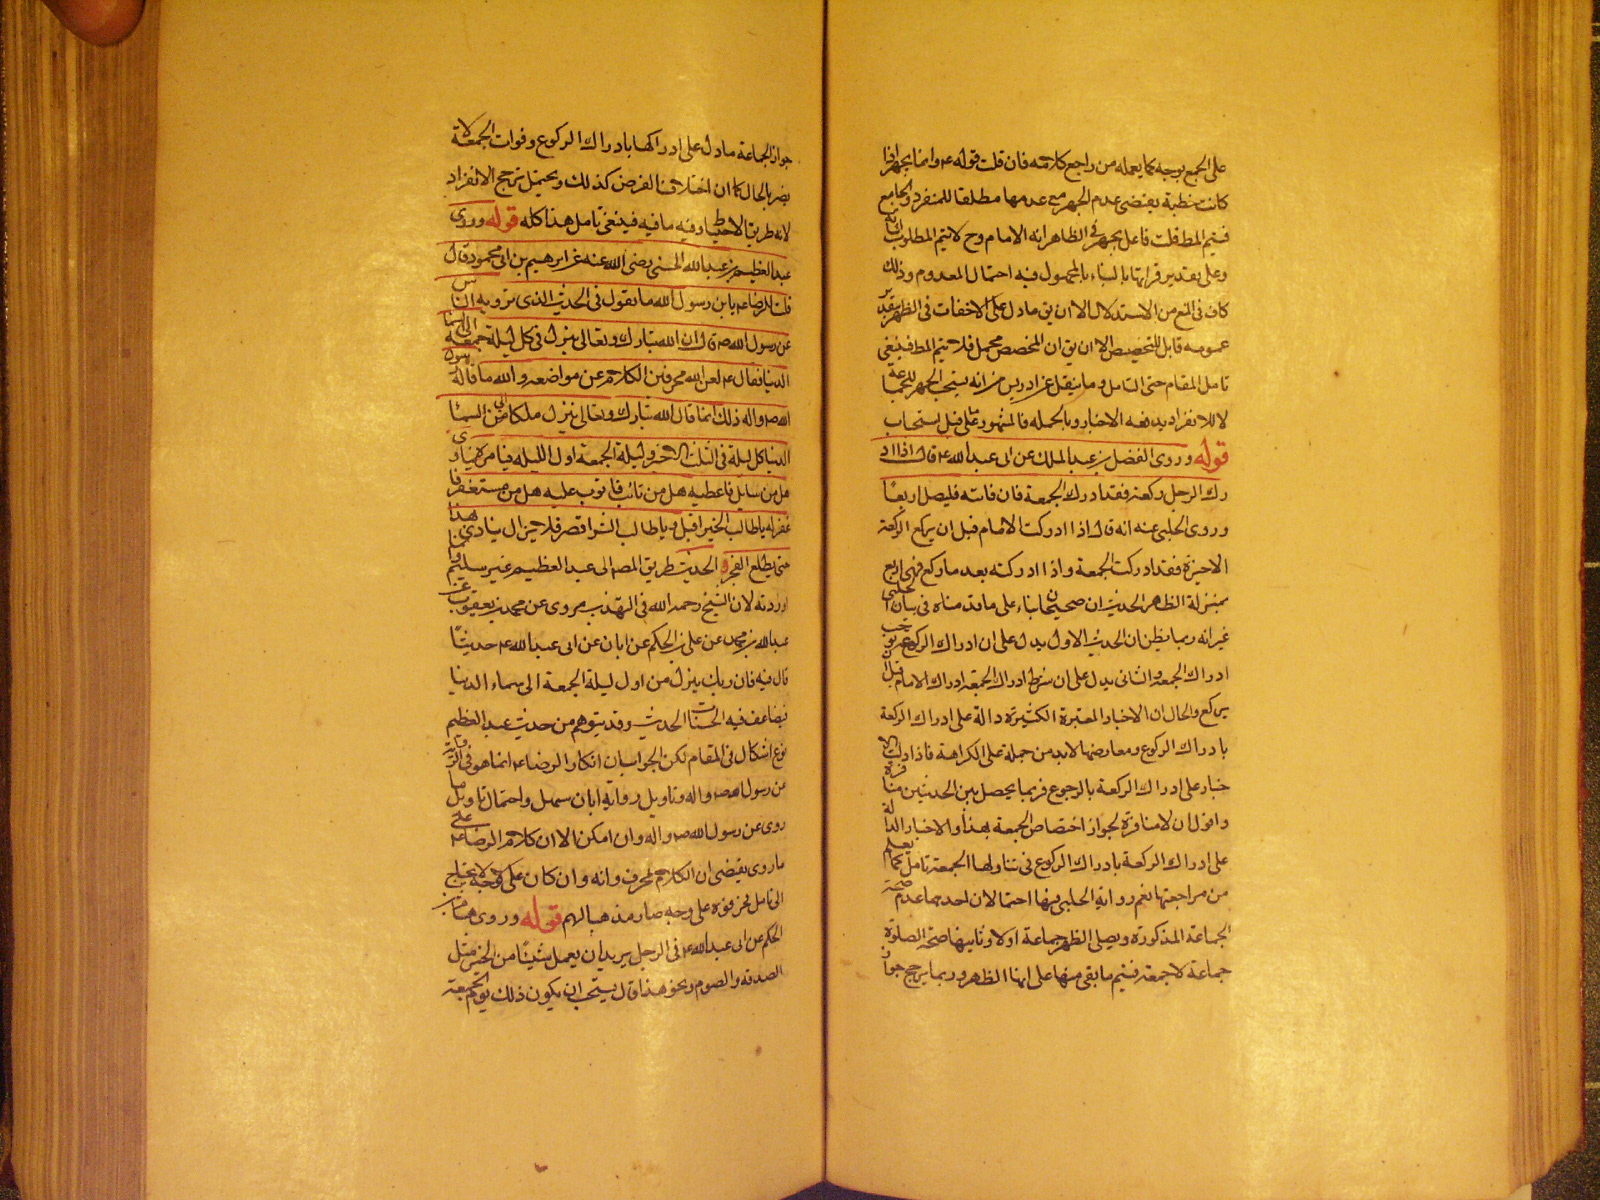 على الجمع بوجه كما يعمله من راجع كلامته فان قلت قوله ع وانما يجهر اذا
كانت خطبة يقتضى عدم الجهر مع عدمها مطلقا للمنفرد والجامع
فيتم المط قلت فاعل يجهر فى الظاهر انه الامام وح لا يتم المطلوب
وعلى تقدير قرائتها بالبناء بالمجهول فيه احتمال المعدوم وذلك
كاف فى المنع من الاستدلال الا ان يق ما دل على الاخفات فى الظهر بتقدير
عمومه قابل للتخصيص الا ان يق ان المخصص محمل فلا يتم المط فينبغى
تامل المقام حتى التامل وما ينقل عن ادريس من انه يستحب الجهر للجماعة
لا للانفراد يدفعه الاخبار وبالجمله فالمشهور على قبل استحباب
قوله وروى الفضل بن عبد الملك عن ابى عبد الله ع قال اذا اد
رك الرجل ركعة فقد ادرك الجمعة فان فاتته فليصل اربعا
وروى الحلبى عنه انه قال اذا ادركت الامام قبل ان يركع الركعة
الاخيرة فقد ادركت الجمعة واذا ادركته بعد ما ركع فهى اربع
بمنزلة الظهر الحديثان صحيحان بناء على ما قدمناه فى بيان الحلبى
غير انه ربما يظن ان الحديث الاول يدل على ان ادراك الركوع يوجب
ادراك الجمعة والثانى يدل على ان شرط ادراك الجمعة ادراك الامام قبل ان
يركع والحال ان الاخبار المعتبرة الكثيرة دالة على ادراك الركعة
بادراك الركوع ومعارضها لابد من حمله على الكراهة فاذا دلت الا
خبار على ادراك الركعة بالرجوع فربما يحصل بين الحديثين منافرة
واقول ان لا منافرة لجواز اختصاص الجمعة بهذا والاخبار الدالة
على ادراك الركعة بادراك الركوع فى تناولها الجمعة تامل كما يعلم
من مراجعتها نعم رواية الحلبى فيها احتمالان احدهما عدم صحة
الجماعة المذكورة ويصلى الظهر جماعة اولا وثانيهما صحة الصلوة
جماعة لا جمعة فيتم ما بقى منها على انها الظهر وربما يرجح جواز
جواز الجماعة ما دل على ادراكها بادراك الركوع وفوات الجمعة لا
يضر بالحال كما ان اختلاف الفرض كذلك ويحتمل ترجح الانفراد
لانه طريق الاحتياط وفيه ما فيه فينبغى تامل هذا كله قوله وروى
عبد العظيم بن عبد الله الحسنى رضى الله عنه عن ابرهيم بن ابى محمود قال
قلت للرضا ع يابن رسول الله ما تقول فى الحديث الذى يرويه الناس
عن رسول الله ص قال ان الله تبارك وتعالى ينزل فى كل ليلة جمعة الى السماء
الدنيا فقال ع لعن الله محرفين الكلام عن مواضعه والله ما قال رسول
الله ص واله ذلك انما قال الله تبارك وتعالى ينزل ملكا الى السماء
الدنيا كل ليلة فى الثلث الاخير وليلة الجمعة اول الليله فيامره فينادى
هل من سايل فاعطيه هل من تائب فاتوب عليه هل من مستغفر فا
غفر له يا طالب الخير اقبل ويا طالب الشر اقصر فلا يزال ينادى بهذا
حتى يطلع الفجر الحديث طريق المص الى عبد العظيم غير سليم وانما
اوردته لان الشيخ رحمه الله فى التهذيب مروى عن محمد بن يعقوب عن
عبد الله بن محمد عن على بن الحكم عن ابان عن ابى عبد الله ع حديثا
قال فيه فان ربك ينزل من اول ليلة الجمعة الى سماء الدنيا
يضاعف فيه الحسنات الحديث وقد يتوهم من حديث عبد العظيم
نوع اشكال فى المقام لكن الجواب ان انكار الرضا ع انما هو فى الرواية
عن رسول الله ص واله وتاويل رواية ابان سهل واحتمال تاويل ما
روى عن رسول الله ص واله وان امكن الا ان كلام الرضا ع على
ما روى يقتضى ان الكلام محرف وانه وان كان على وجه لا يحتاج
الى تامل محرفوه على وجه صار مذهبا لهم قوله وروى هشام بن
الحكم عن ابى عبد الله ع فى الرجل يريد ان يعمل شيئا من الخير مثل
الصدقة والصوم ونحو هذا قال يستحب ان يكون ذلك يوم الجمعة